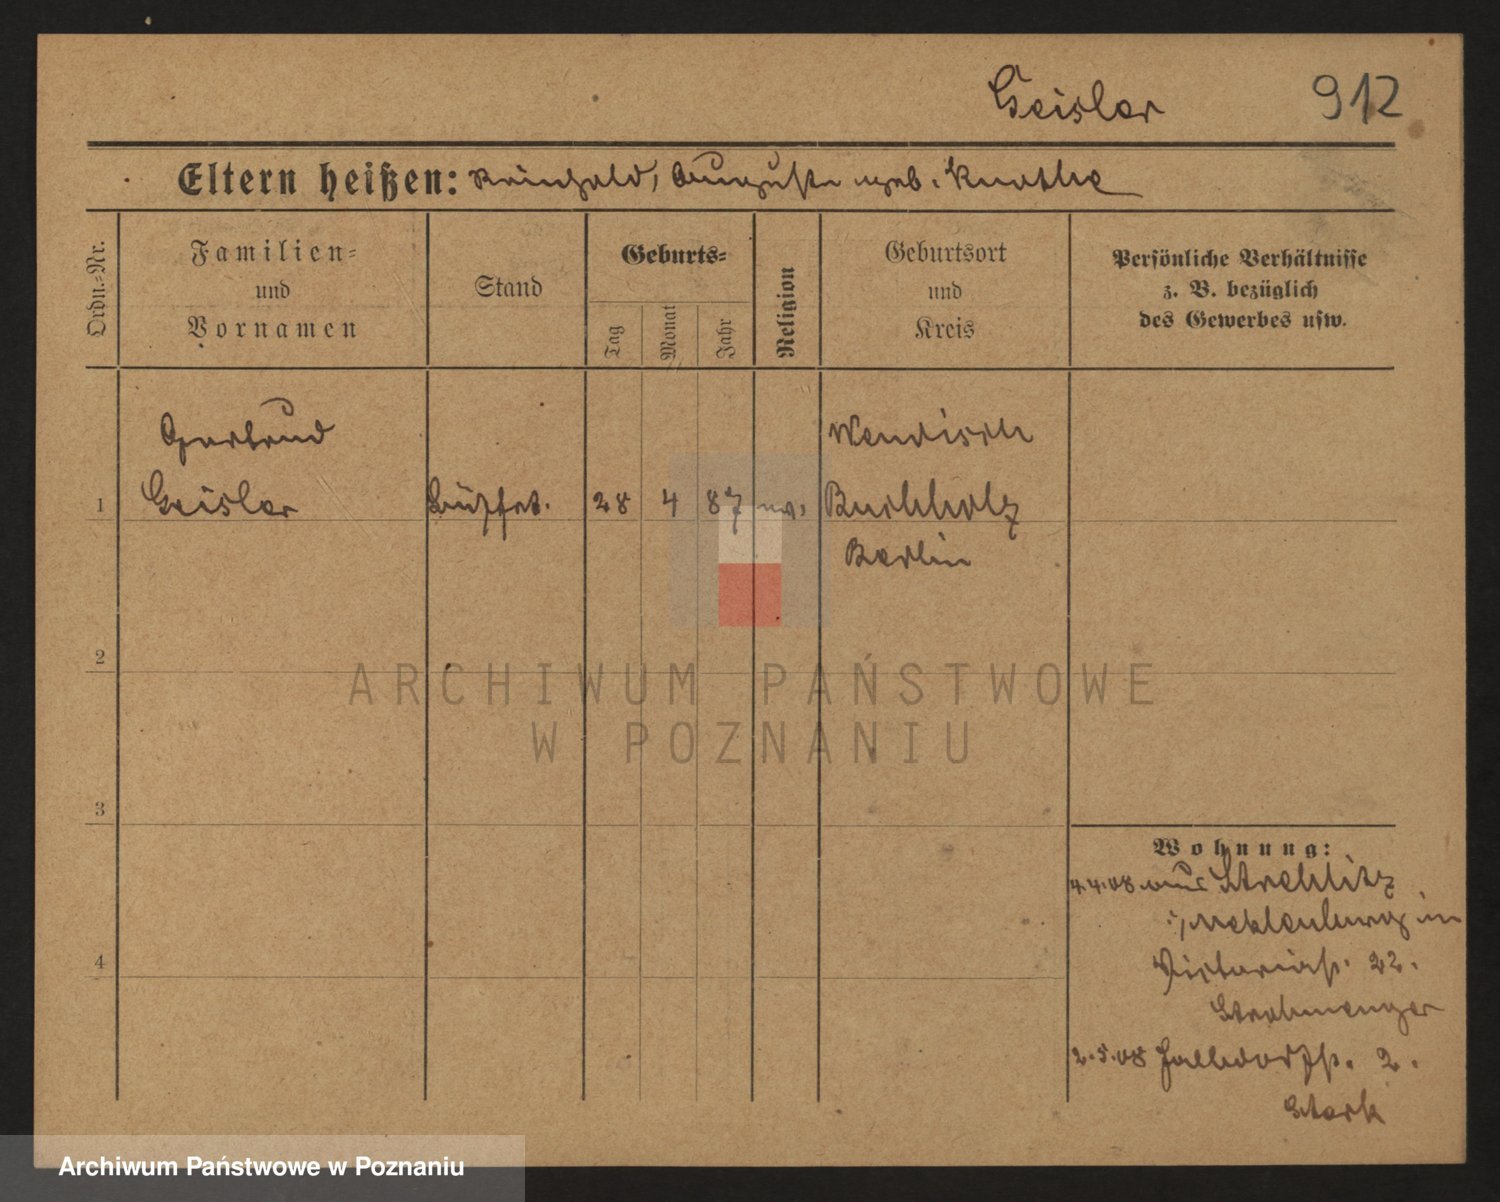 Geisler 912
Eltern heißen: Reinhold, Auguste geb. Knothe
Ordn.-Nr.
Familien-
und
Vornamen
Stand
Geburts-
Tag
Monat
Jahr
Religion
Geburtsort
und
Kreis
Persönliche Verhältnisse
z. B. bezüglich
des Gewerbes usw.
Gertrud
Geisler
1
28 4 87
Wendisch
Buchholz
Berlin
2
3
4
Wohnung:
4.4.08 aus Strehlitz
i/Meklenburg in
Victoriastr. 22.
Strohmenger
2.5.08 2.
Stark
ARCHIWUM PAŃSTWOWE
W POZNANIU
Archiwum Państwowe w Poznaniu